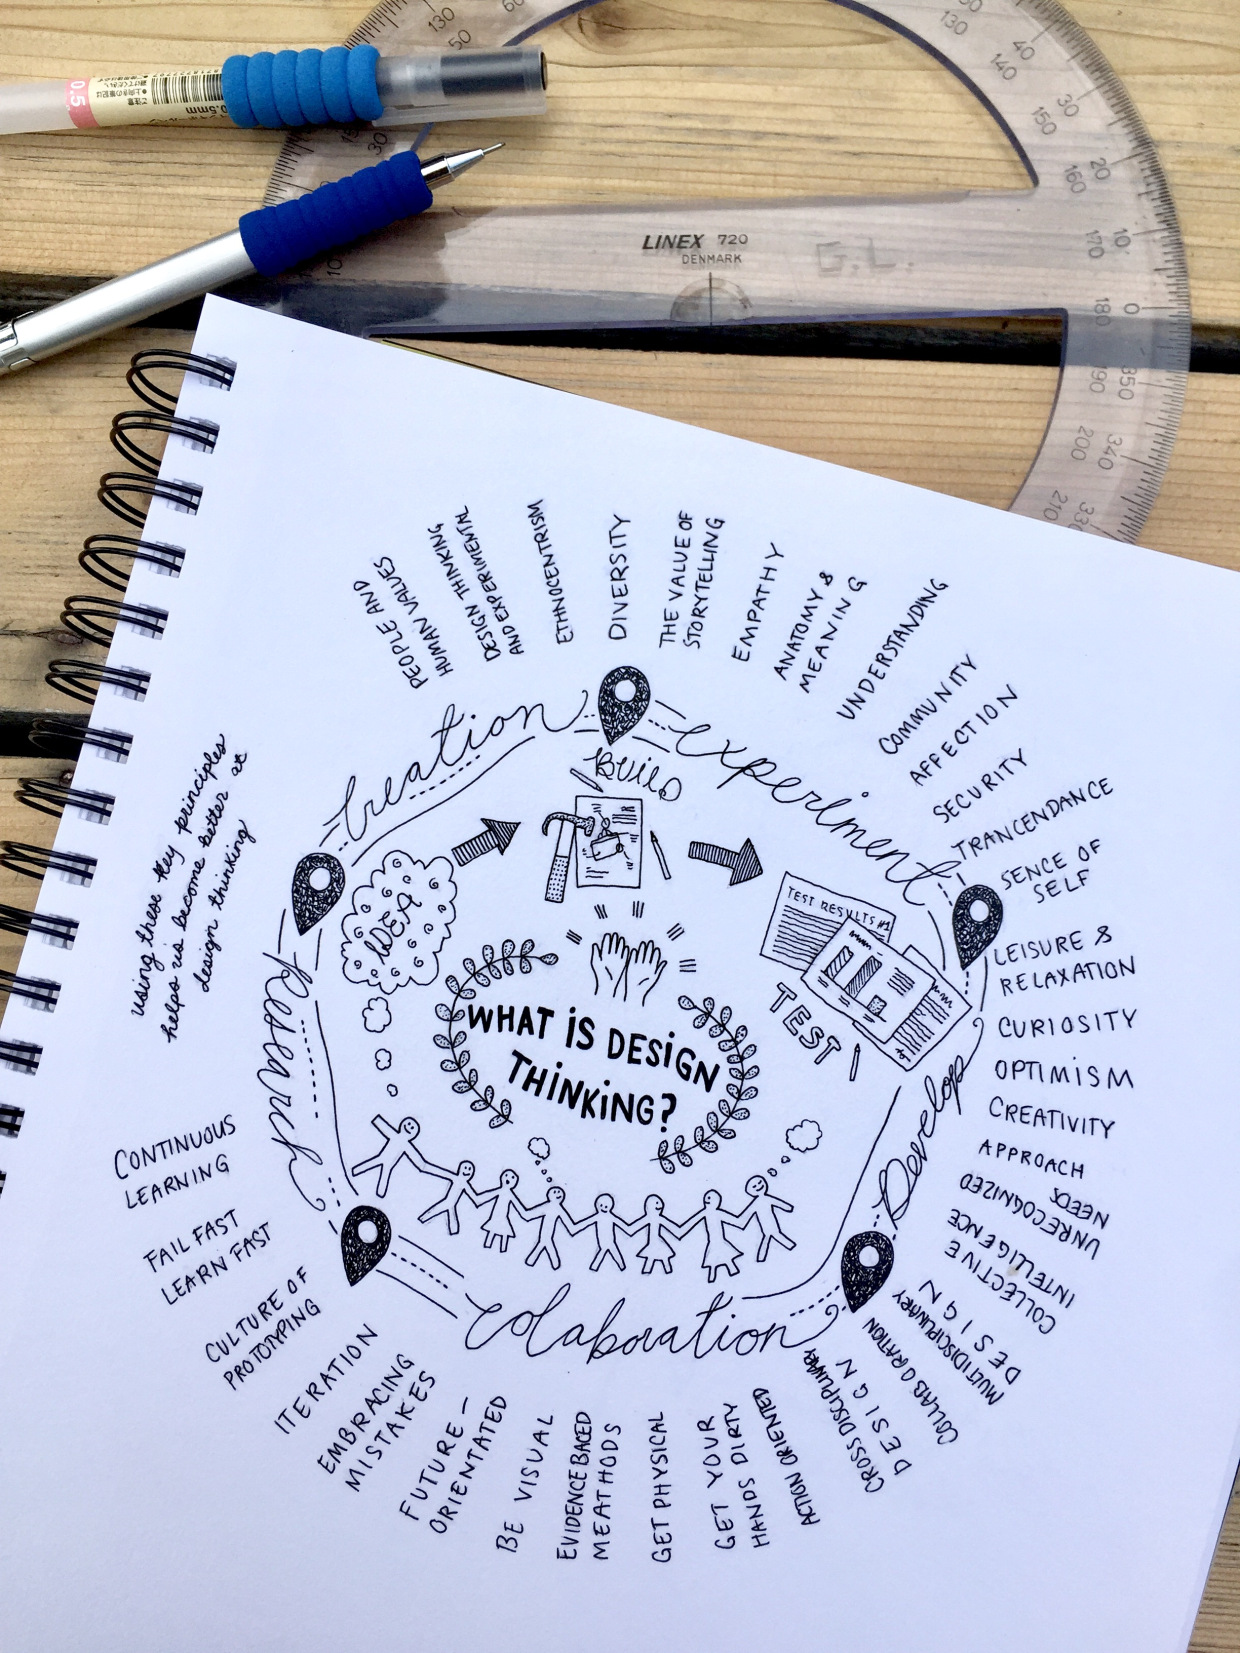 0.5
0.5mm
LINEX 720
DENMARK
G.L.
130
50
60
40
140
30
150
20
160
10
170
0
180
350
190
340
200
330
210
using these key principles
helps us become better at
design thinking
PEOPLE AND
HUMAN VALUES
DESIGN THINKING
AND EXPERIMENTAL
ETHNOCENTRISM
DIVERSITY
THE VALUE OF
STORYTELLING
EMPATHY
ANATOMY &
MEANING
UNDERSTANDING
COMMUNITY
AFFECTION
SECURITY
TRANCENDANCE
SENCE OF
SELF
LEISURE &
RELAXATION
CURIOSITY
OPTIMISM
CREATIVITY
APPROACH
UNRECOGNIZED
NEEDS
COLLECTIVE
INTELLIGENCE
MULTIDISCIPLINARY
DESIGN
COLLABORATION
CROSS DISCIPLINARY
DESIGN
ACTION ORIENTED
GET YOUR
HANDS DIRTY
GET PHYSICAL
EVIDENCE BACED
MEATHODS
BE VISUAL
FUTURE-
ORIENTATED
EMBRACING
MISTAKES
ITERATION
CULTURE OF
PROTOTYPING
FAIL FAST
LEARN FAST
CONTINUOUS
LEARNING
Creation
experiment
Develop
Colaboration
Research
IDEA
BUILD
TEST RESULTS #1
TEST
WHAT iS DESiGN
THiNKiNG?